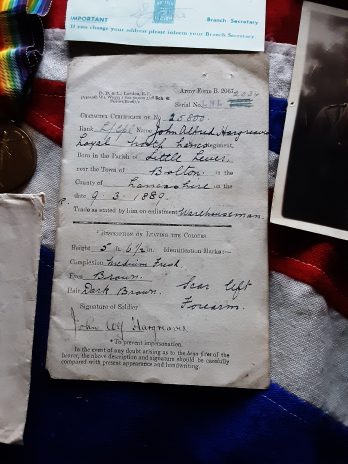 IMPORTANT
Branch Secretary
If you change your address please inform your Branch Secretary.
Army Form B. 2067
Serial No.
CHARACTER CERTIFICATE OF No. 25800.
Rank L/Cpl Name John Alfred Hargreaves
Loyal North Lancs Regiment.
Born in the Parish of Little Lever,
near the Town of Bolton in the
County of Lancashire on the
date 9-3-1889.
Trade as stated by him on enlistment Warehouseman.
DESCRIPTION ON LEAVING THE COLOURS
Height 5 ft 6½ in. Identification Marks:—
Complexion Medium Fresh.
Eyes Brown. Scar left
Hair Dark Brown. Forearm.
Signature of Soldier
John Hargreaves
*To prevent impersonation.
In the event of any doubt arising as to the bona fides of the
bearer, the above description and signature should be carefully
compared with present appearance and handwriting.